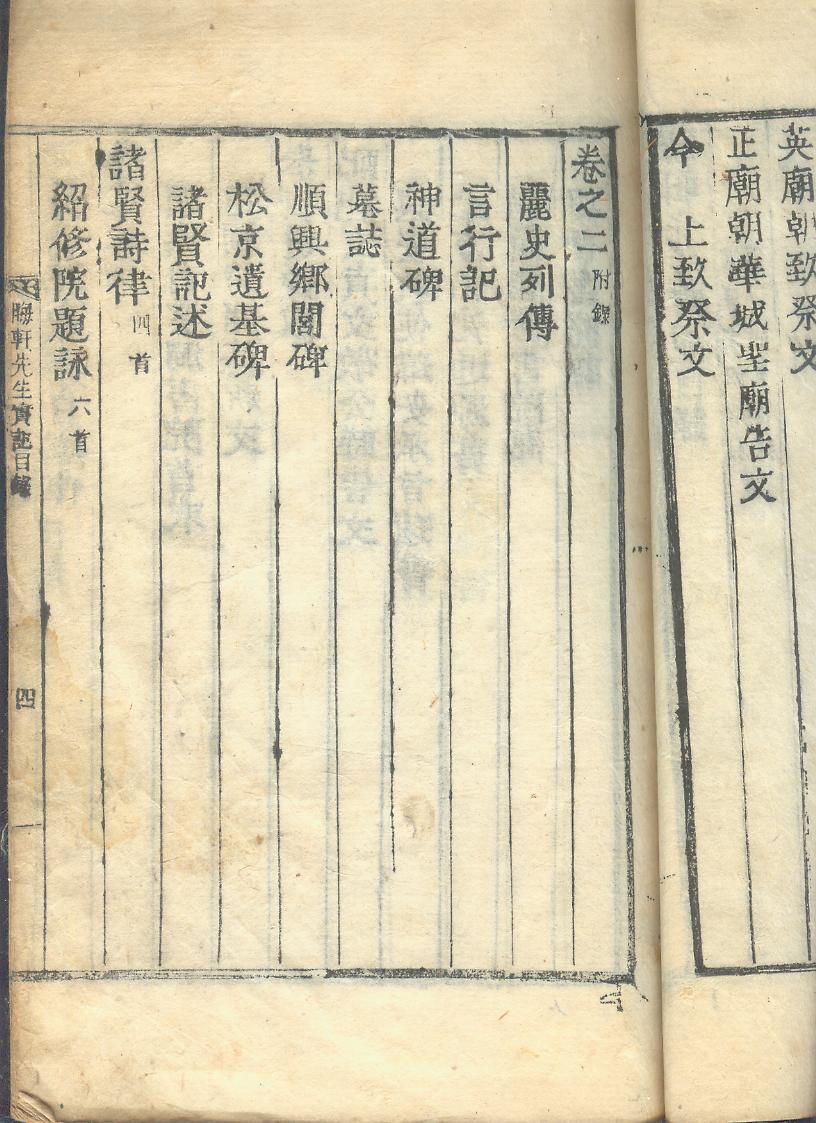 英廟朝致祭文
正廟朝華城聖廟告文
今 上致祭文
卷之二 附錄
麗史列傳
言行記
神道碑
墓誌
順興鄉閭碑
松京遺基碑
諸賢記述
諸賢詩律 四首
紹修院題詠 六首
晦軒先生實記目錄
四